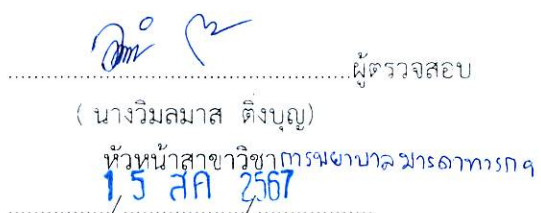 ผู้ตรวจสอบ
( นางวิมลมาส ติงบุญ)
หัวหน้าสาขาวิชาการพยาบาลมารดาทารกฯ
15 สค 2567